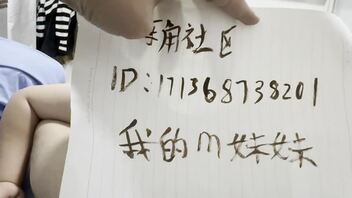 角社区
ID:171368738201
我的m妹妹